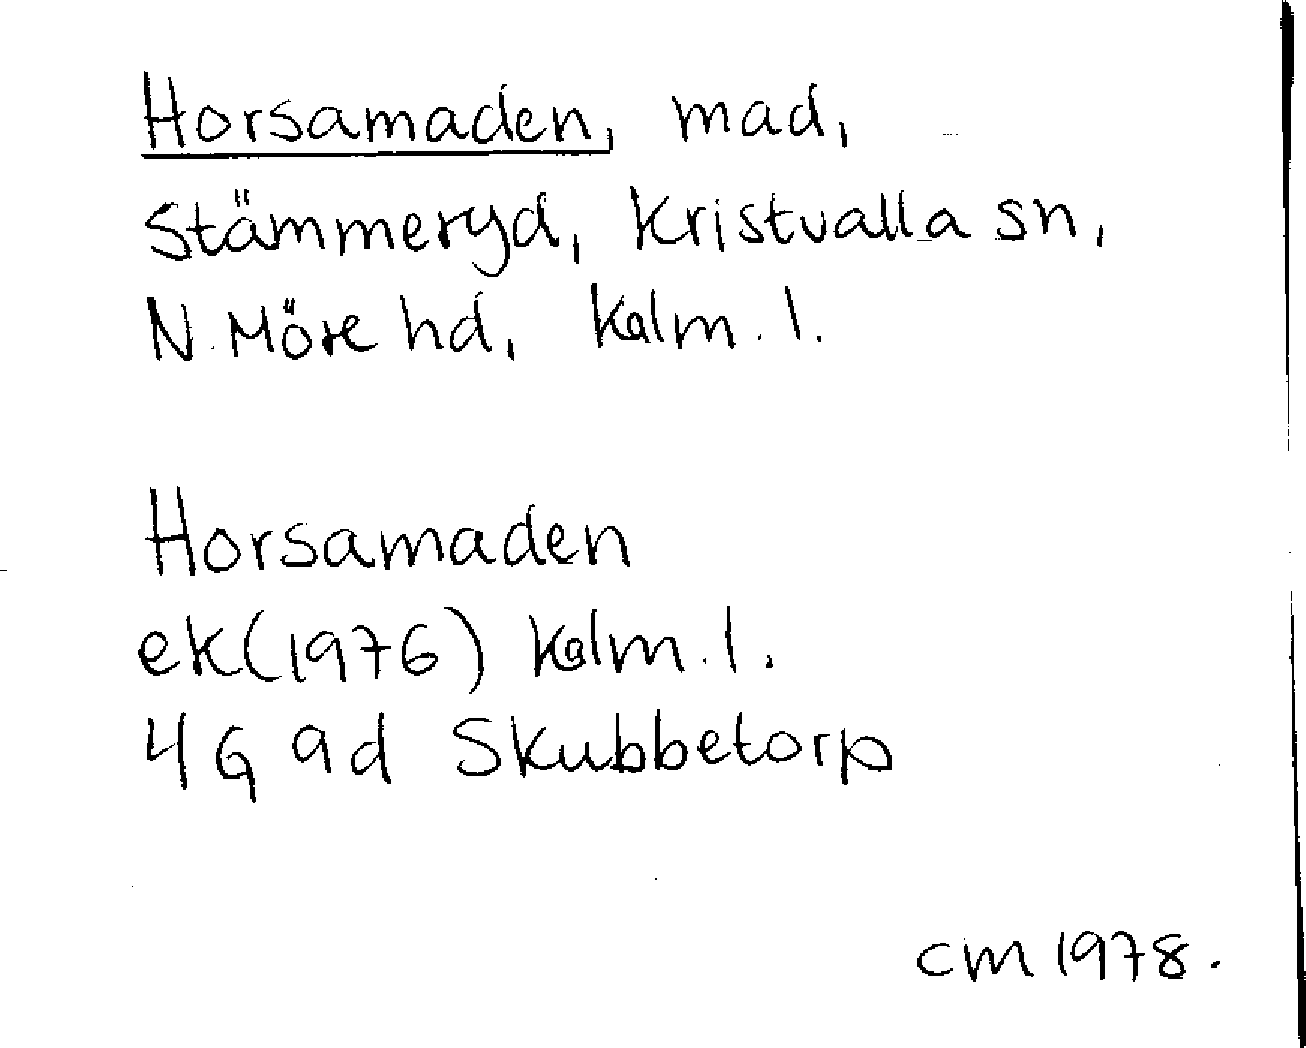 Horsamaden, mad,
Stämmeryd, Kristvalla sn,
N. Möre hd, Kalm. l.
Horsamaden
ek(1976) Kalm. l.
4G 9d Skubbetorp
CM 1978.